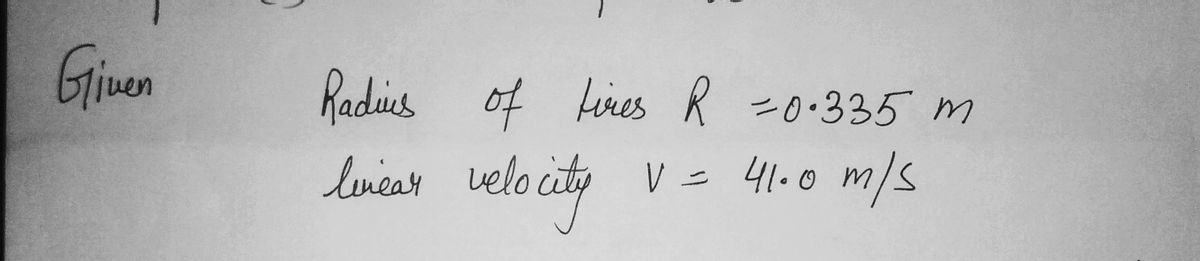 Given
Radius of tires R = 0.335 m
linear velocity V = 41.0 m/s